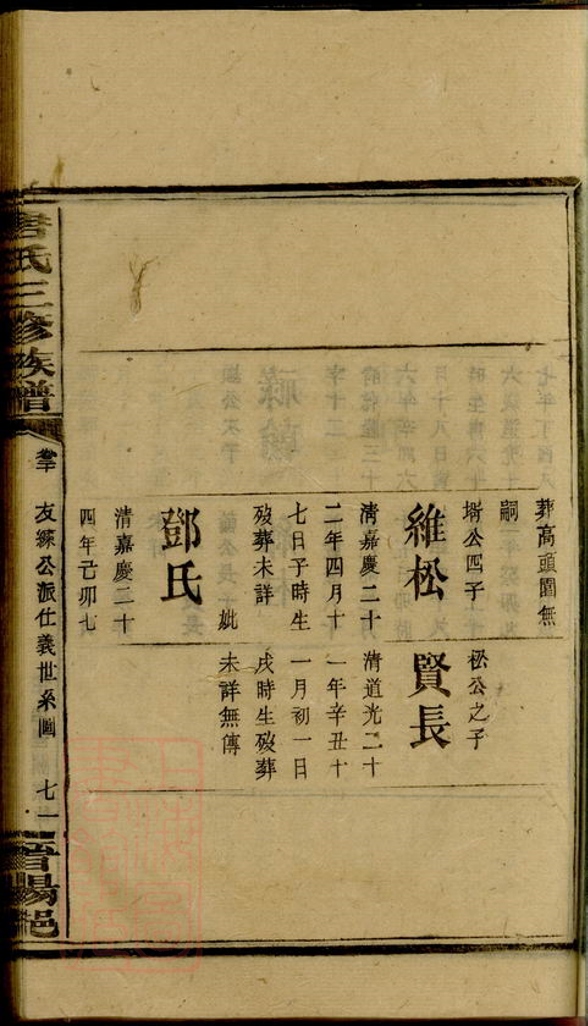 葬高頭園無
嗣
壻公四子
維松
清嘉慶二十
二年四月十
七日子時生
歿葬未詳
妣
鄧氏
清嘉慶二十
四年己卯七
松公之子
賢長
清道光二十
一年辛丑十
一月初一日
戌時生歿葬
未詳無傳
氏三修族譜
友公派仕義世系圖
七一
晉陽邑